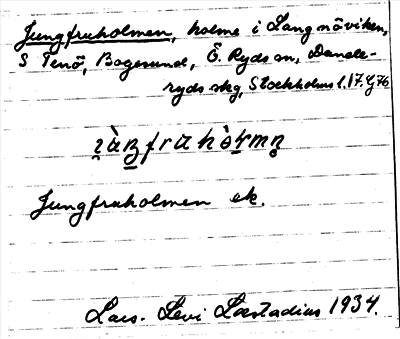 Jungfruholmen, holme i Langnöviken,
S Tenö, Bogesund, Ö. Ryds sn, Dande-
ryds skg, Stockholms l. 17. Ej 76
Jungfruholmen ek.
Lars-Levi Læstadius 1934.